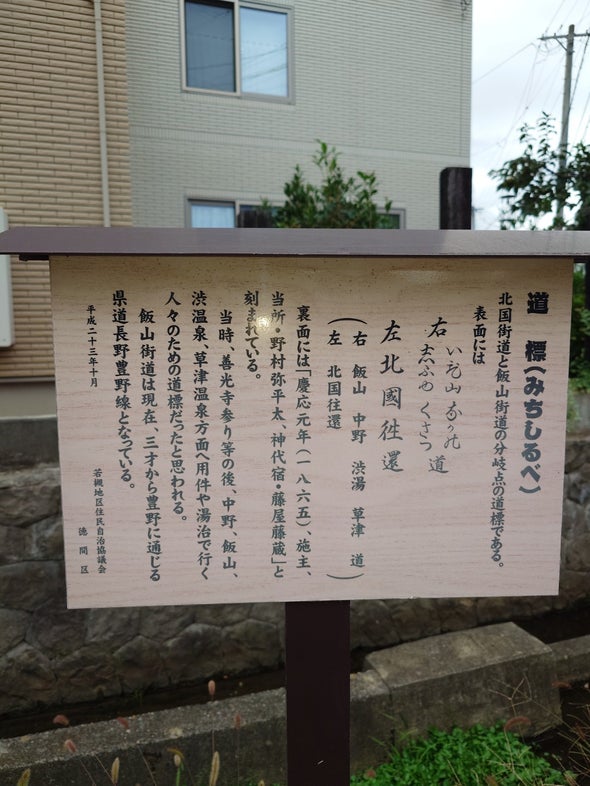 道 標(みちしるべ)
北国街道と飯山街道の分岐点の道標である。
表面には
右 いゐ山 なか乃
志ふゆ くさつ 道
左 北國徃還
(右 飯山 中野 渋湯 草津 道)
(左 北国往還)
裏面には「慶応元年(一八六五)、施主、
当所・野村弥平太、神代宿・藤屋藤蔵」と
刻まれている。
当時、善光寺参り等の後、中野、飯山、
渋温泉、草津温泉方面へ用件や湯治で行く
人々のための道標だったと思われる。
飯山街道は現在、三才から豊野に通じる
県道長野豊野線となっている。
平成二十三年十月
若槻地区住民自治協議会
徳間区